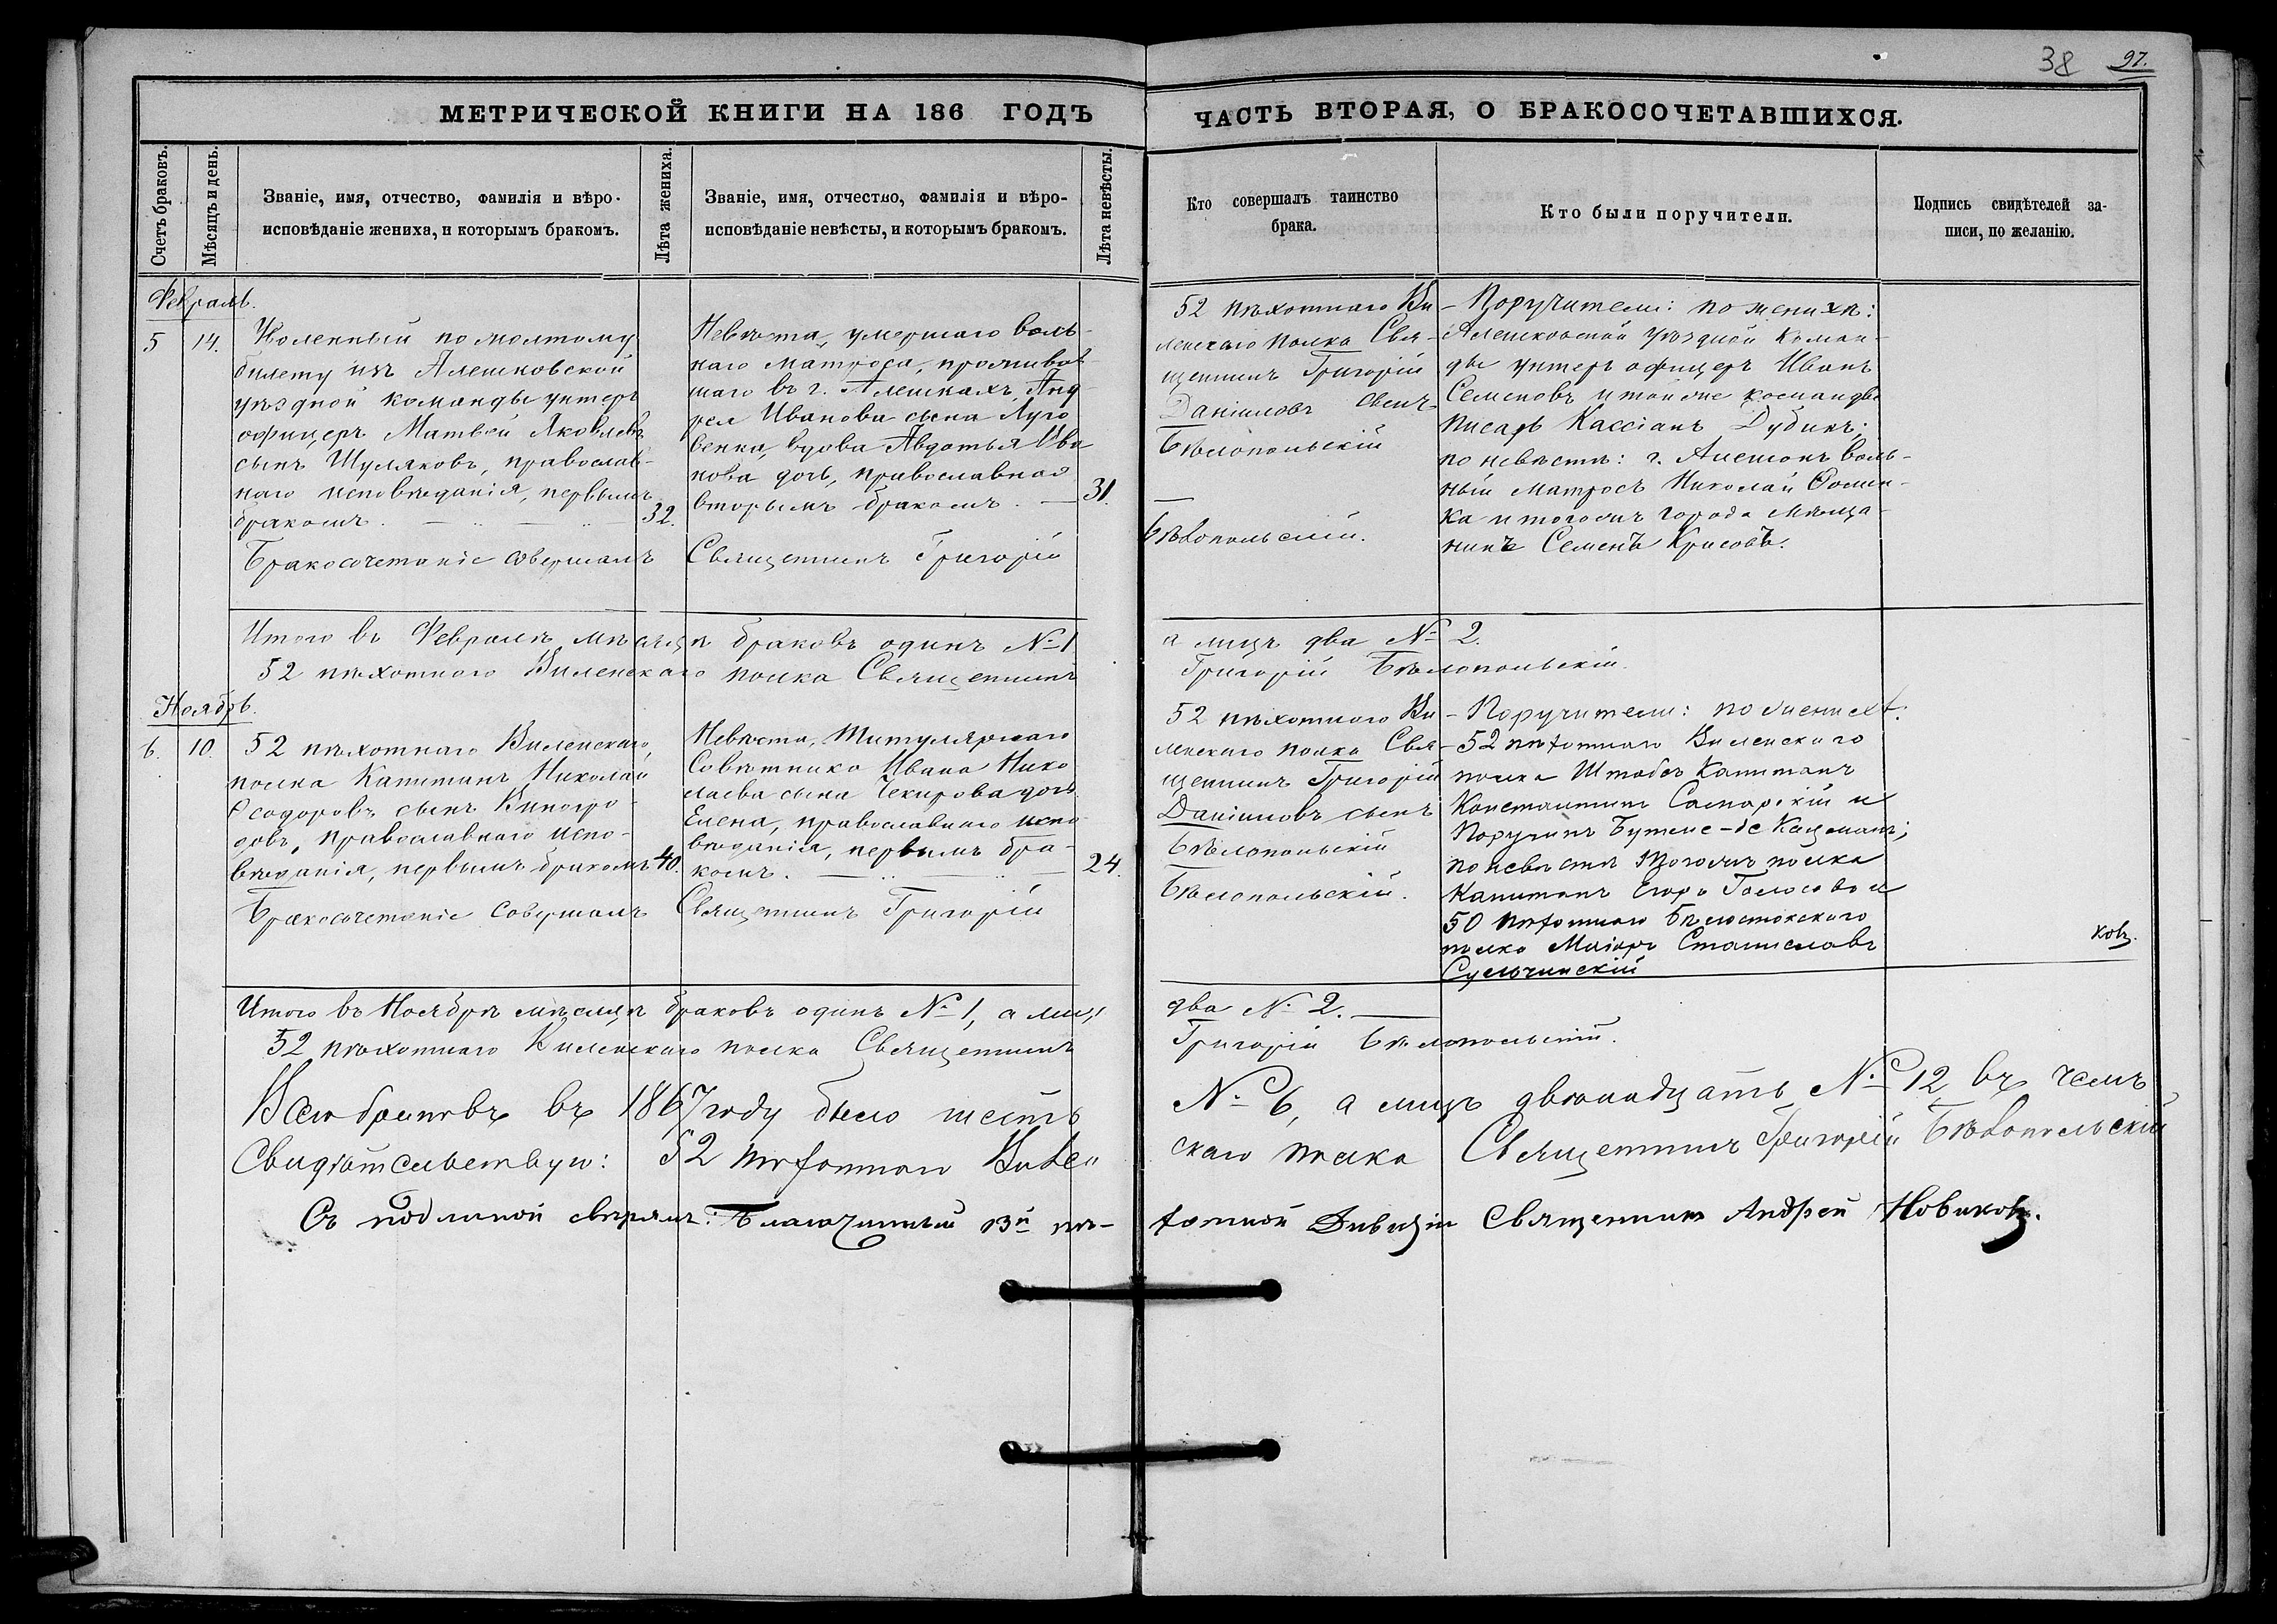 38 97.
МЕТРИЧЕСКОЙ КНИГИ НА 186 ГОДЪ
ЧАСТЬ ВТОРАЯ, О БРАКОСОЧЕТАВШИХСЯ.
Счетъ браковъ.
Мѣсяцъ и день.
Званіе, имя, отчество, фамилія и вѣро-
исповѣданіе жениха, и которымъ бракомъ.
Лѣта жениха.
Званіе, имя, отчество, фамилія и вѣро-
исповѣданіе невѣсты, и которымъ бракомъ.
Лѣта невѣсты.
Кто совершалъ таинство
брака.
Кто были поручители.
Подпись свидѣтелей за-
писи, по желанію.
Февраль.
5
14.
Уволенный по желтому
билету изъ Алешковской
уѣздной команды унтеръ
офицеръ Матвѣй Яковлевъ
сынъ Шуляковъ, православ-
наго исповѣданія, первымъ
бракомъ.
32.
Невѣста, умершаго воль-
наго матроса, проживав
шаго въ г. Алешкахъ, Анд
рея Иванова сына Луго
венка, вдова Авдотья Ива
нова дочь, православная
вторымъ бракомъ.
31.
52 пѣхотнаго Ви
ленскаго полка Свя-
щенникъ Григорій
Даніиловъ сынъ
Бѣлопольскій
- Поручители: по женихѣ:
Алешковской уѣздной коман-
ды унтеръ офицеръ Иванъ
Семеновъ и тойже команды
писарь Кассіанъ Дубинъ;
по невѣстѣ: г. Алешокъ воль-
ный матросъ Николай Ѳомен-
ка и тогожъ города мѣща-
нинъ Семенъ Крисовъ.
Бракосочетаніе совершалъ Священникъ Григорій
Бѣлопольскій.
Итого въ Февралѣ мѣсяцѣ браковъ одинъ № 1
а лицъ два № 2.
52 пѣхотнаго Виленскаго полка Священникъ
Григорій Бѣлопольскій.
Ноябрь.
6.
10.
52 пѣхотнаго Виленскаго,
полка Капитанъ Николай
Ѳеодоровъ сынъ Виногра-
довъ, православнаго испо-
вѣданія, первымъ бракомъ
40.
Невѣста, Титулярнаго
Совѣтника Ивана Нико
лаева сына Чекирова дочь
Елена, православнаго испо
вѣданія, первымъ бра-
комъ.
24.
52 пѣхотнаго Ви
ленскаго полка Свя-
щенникъ Григорій
Даніиловъ сынъ
Бѣлопольскій
- Поручители: по женихѣ:
52 пѣхотнаго Виленскаго
полка Штабсъ Капитанъ
Константинъ и
Поручикъ
по невѣстѣ тогожъ полка
Капитанъ Егоръ Голосовъ и
50 пѣхотнаго Бѣлостокскаго
полка Маіоръ Станиславъ
Сульчинскій
ковъ.
Бракосочетаніе совершалъ Священникъ Григорій
Бѣлопольскій.
Итого въ Ноябрѣ мѣсяцѣ браковъ одинъ № 1, а лицъ
два № 2.
52 пѣхотнаго Виленскаго полка Священникъ
Григорій Бѣлопольскій.
Всего браковъ въ 1867 году было шесть
№ 6, а лицъ двѣнадцать № 12 въ чемъ
Свидѣтельствую: 52 пѣхотнаго Вилен
скаго полка Священникъ Григорій Бѣлопольскій
Съ подлиной свѣрялъ: Благочинный 13й пѣ-
хотной Дивизіи Священникъ Андрей Новиковъ.